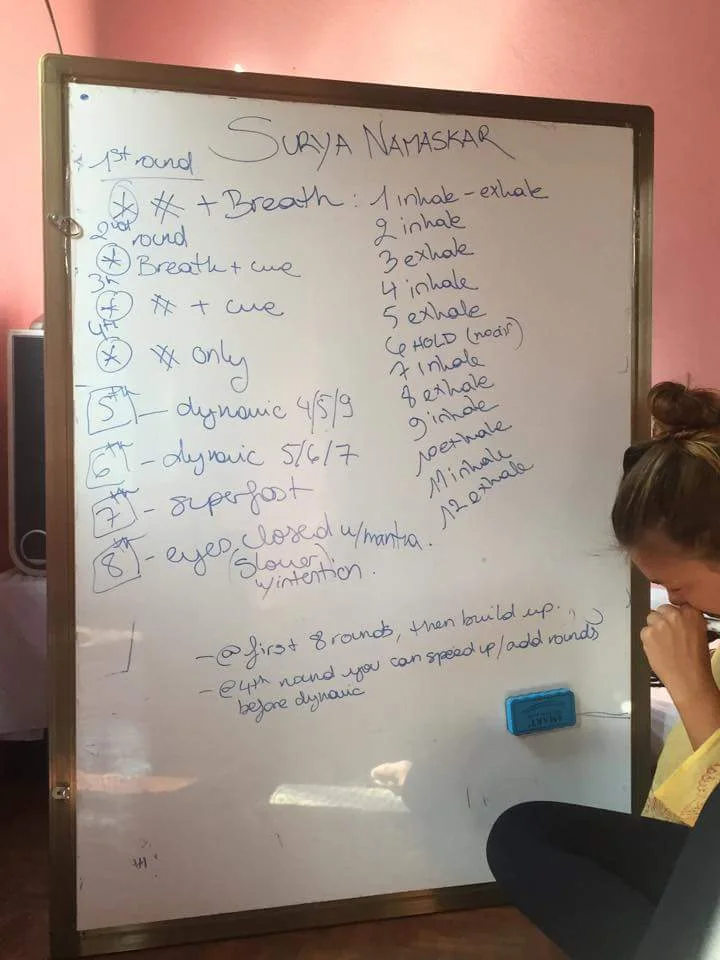 SURYA NAMASKAR
1st round
* # + Breath : 1 inhale - exhale
2 inhale
2nd round
* Breath + cue
3 exhale
3rd
* # + cue
4 inhale
5 exhale
4th
* # only
6 HOLD (no air)
7 inhale
8 exhale
5th - dynamic 4/5/9
9 inhale
10 exhale
6th - dynamic 5/6/7
11 inhale
7th - superfast
12 exhale
8th - eyes closed w/mantra.
(Slower)
w/intention.
- @ first 8 rounds, then build up.
- @ 4th round you can speed up/add rounds
before dynamic
SMART